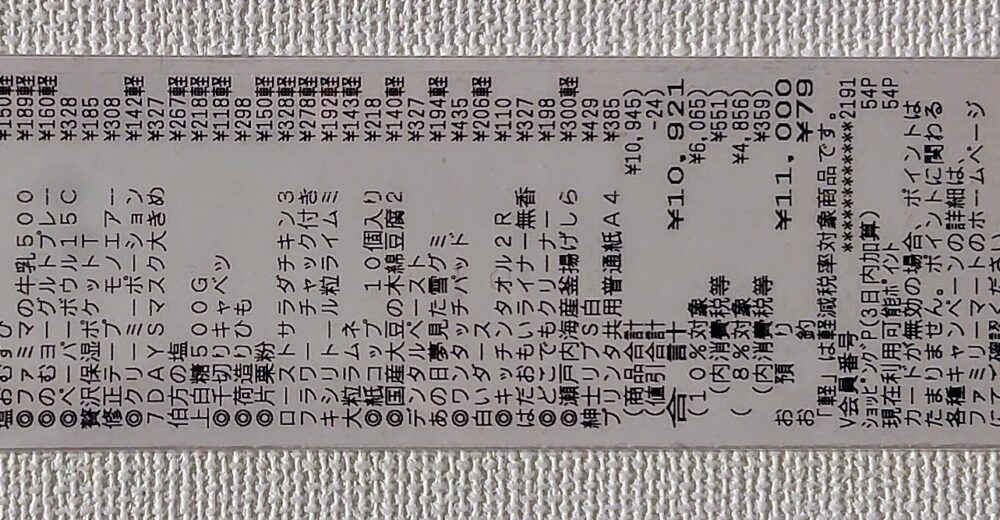 塩おむすび ¥150軽
◎ファミマの牛乳500 ¥189軽
◎のむヨーグルトプレー ¥160軽
◎ペーパーボウル15C ¥328
贅沢保湿ポケットT ¥185
修正テープ モノエアー ¥308
◎クリーミーポーション ¥142軽
7DAYSマスク大きめ ¥327
伯方の塩 ¥267軽
上白糖500G ¥218軽
◎千切りキャベツ ¥118軽
◎荷造りひも ¥298
◎片栗粉 ¥150軽
ローストサラダチキン3 ¥328軽
フラワーチャック付き ¥278軽
キシリトール粒ライムミ ¥192軽
大粒ラムネ ¥143軽
◎紙コップ 10個入り ¥218
◎国産大豆の木綿豆腐2 ¥140軽
デンタルペースト ¥327
あの日夢見た雪グミ ¥194軽
◎ワンタッチパッド ¥435
白いダース ¥206軽
◎キッチンタオル2R ¥110
はだおもいライナー無香 ¥327
◎どこでもクリーナー ¥198
◎瀬戸内海産釜揚げしら ¥300軽
紳士リブS白 ¥429
プリンタ共用普通紙A4 ¥385
(商品合計 ¥10,945)
(値引合計 -24)
合 計 ¥10,921
(10%対象 ¥6,065)
(内消費税等 ¥551)
( 8%対象 ¥4,856)
(内消費税等 ¥359)
お 預 り ¥11,000
お 釣 ¥79
「軽」は軽減税率対象商品です。
V会員番号 ************2191
ショッピングP(3日内加算) 54P
現在利用可能ポイント 54P
カードが無効の場合、ポイントは
たまりません。ポイントに関わる
各種キャンペーンの詳細は、
ファミリーマートのホームページ
にてご確認ください